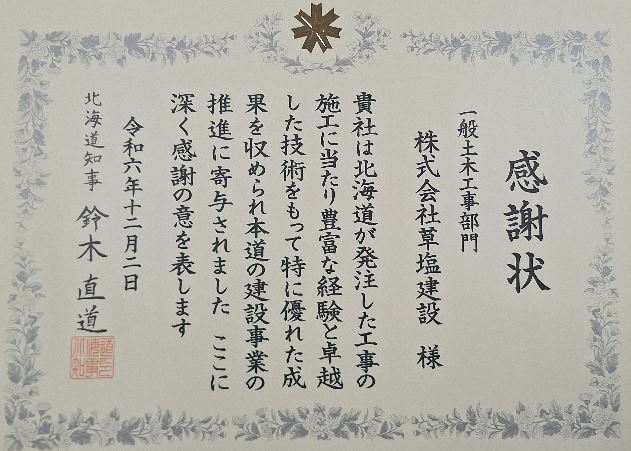 感謝状
一般土木工事部門
株式会社草塩建設 様
貴社は北海道が発注した工事の
施工に当たり豊富な経験と卓越
した技術をもって特に優れた成
果を収められ本道の建設事業の
推進に寄与されました ここに
深く感謝の意を表します
令和六年十二月二日
北海道知事 鈴木直道